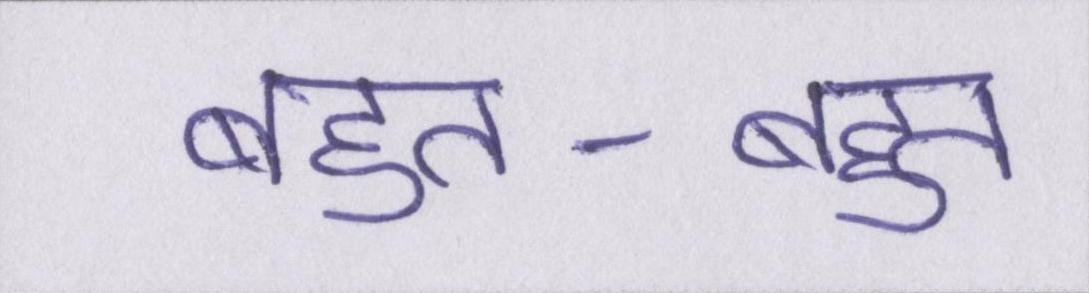 बहुत - बहुत